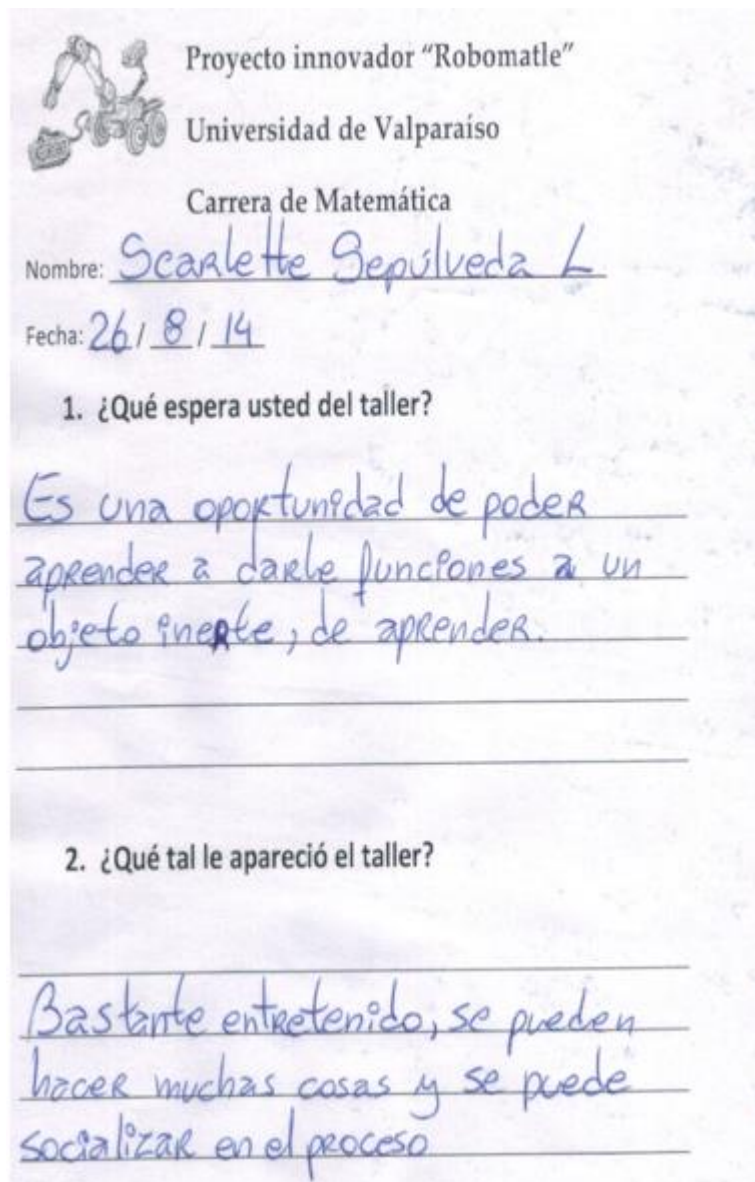 Proyecto innovador “Robomatle”
Universidad de Valparaíso
Carrera de Matemática
Nombre: Scarlette Sepúlveda L
Fecha: 26 / 8 / 14
1. ¿Qué espera usted del taller?
Es una oportunidad de poder
aprender a darle funciones a un
objeto inerte, de aprender.
2. ¿Qué tal le apareció el taller?
Bastante entretenido, se pueden
hacer muchas cosas y se puede
socializar en el proceso